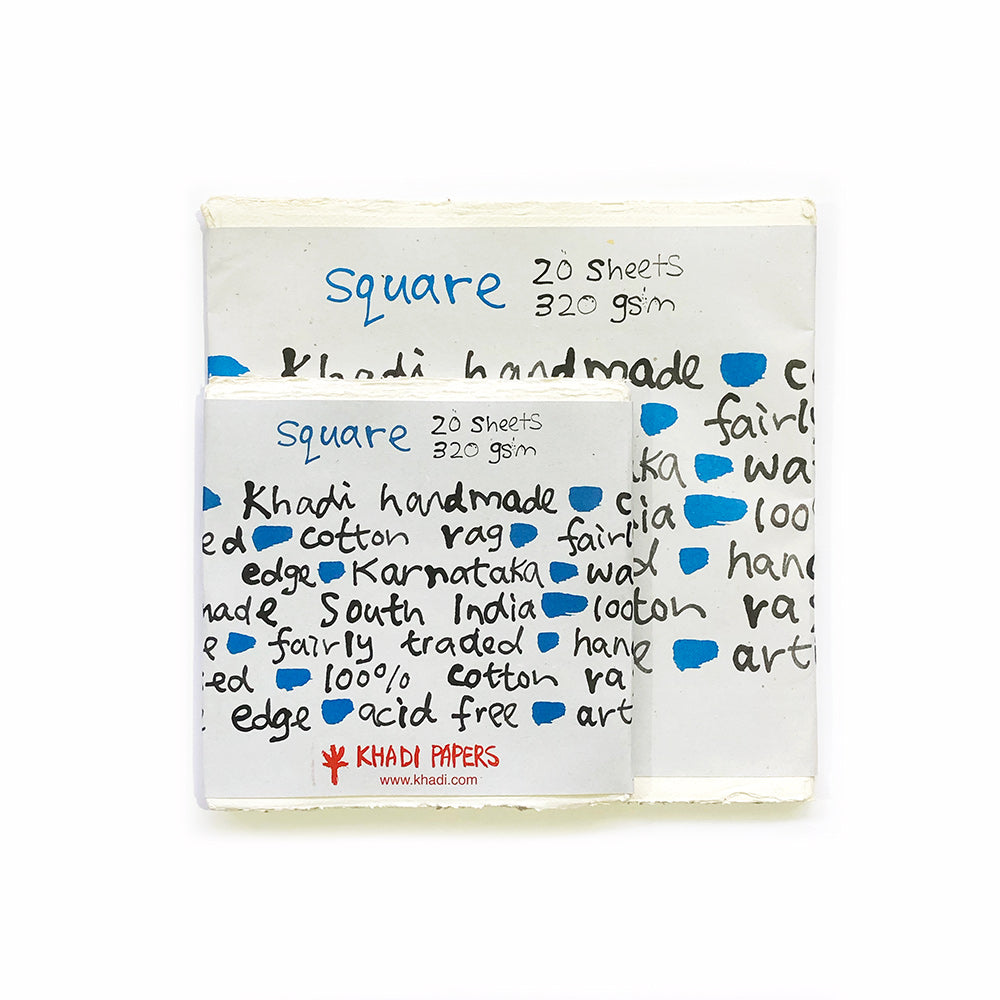 square 20 sheets
320 gsm
Khadi handmade
fairly
100
square 20 sheets
320 gsm
Khadi handmade
cotton rag fairl
edge Karnataka wa
made South India 100
fairly traded han
100% cotton ra
edge acid free art
KHADI PAPERS
www.khadi.com